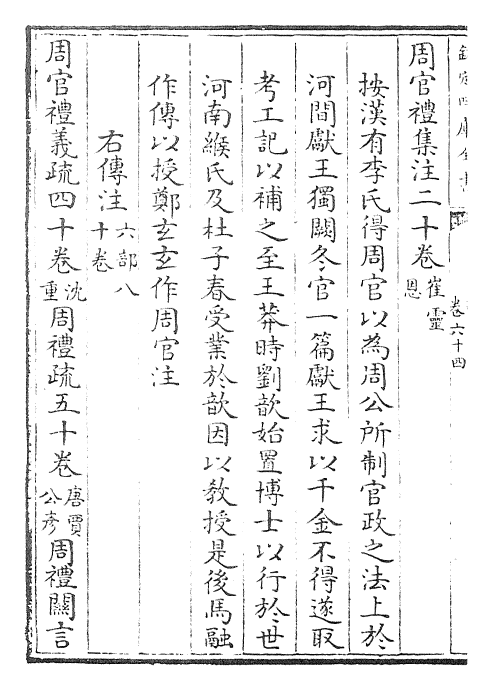 欽定四庫全書
卷六十四
周官禮集注二十卷崔靈恩
按漢有李氏得周官以為周公所制官政之法上於
河間獻王獨闕冬官一篇獻王求以千金不得遂取
考工記以補之至王莽時劉歆始置博士以行於世
河南緱氏及杜子春受業於歆因以教授是後馬融
作傳以授鄭𤣥𤣥作周官注
右傳注六部八十卷
周官禮義疏四十卷沈重周禮疏五十卷唐賈公彥周禮關言